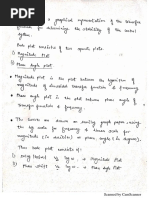 a graphical representation of the transfer
function for determining the stability of the control
system.
Bode plot consists of two separate plots.
i) Magnitude Plot
ii) Phase Angle plot
• Magnitude plot is the plot between the logarithm of
magnitude of sinusoidal transfer function & frequency.
• Phase angle plot is the plot between phase angle of
transfer function & frequency.
• The curves are drawn on semilog graph paper, using
the log scale for frequency & linear scale for
magnitude (in decibels) or phase angle (in degrees).
Thus bode plot consists of: